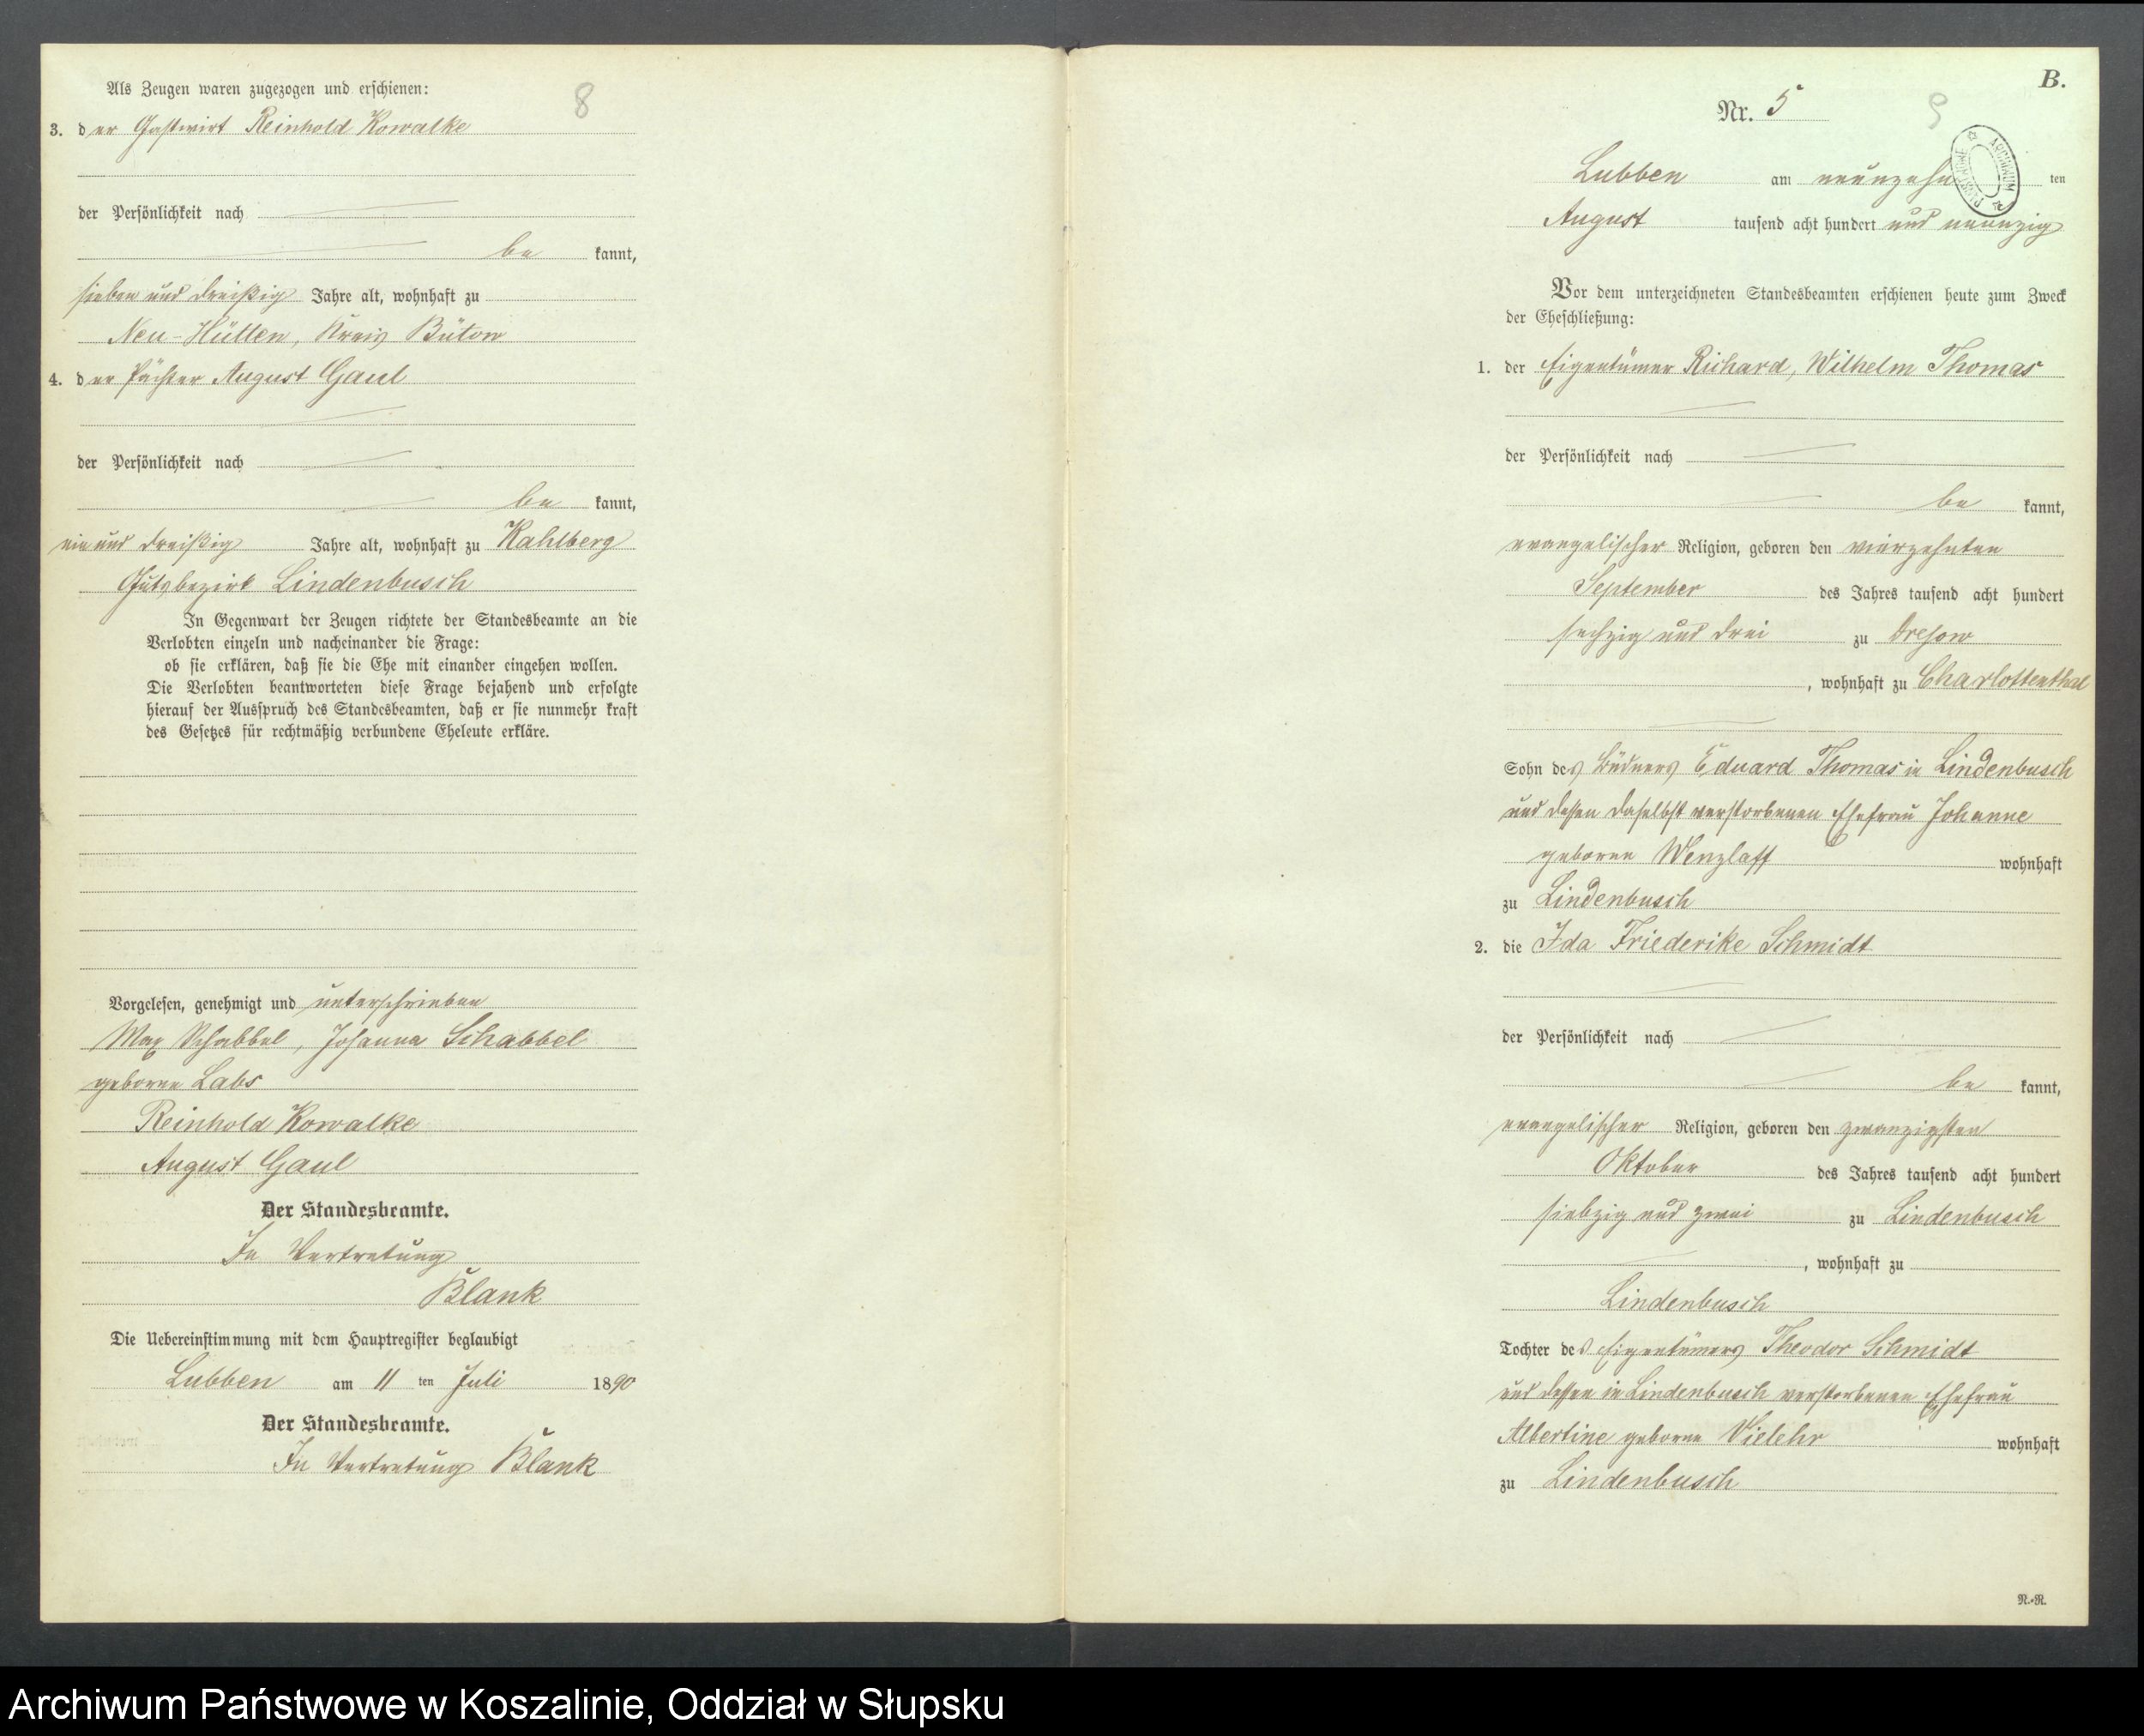 Als Zeugen waren zugezogen und erschienen:
8
3. der Gastwirt Reinhold Kowalke
der Persönlichkeit nach
bekannt,
sieben und dreißig Jahre alt, wohnhaft zu
Neu-Hütten, Kreis Bütow
4. der Pächter August Gaul
der Persönlichkeit nach
bekannt,
ein und dreißig Jahre alt, wohnhaft zu Kahlberg
Gutsbezirk Lindenbusch
In Gegenwart der Zeugen richtete der Standesbeamte an die
Verlobten einzeln und nacheinander die Frage:
ob sie erklären, daß sie die Ehe mit einander eingehen wollen.
Die Verlobten beantworteten diese Frage bejahend und erfolgte
hierauf der Ausspruch des Standesbeamten, daß er sie nunmehr kraft
des Gesetzes für rechtmäßig verbundene Eheleute erkläre.
Vorgelesen, genehmigt und unterschrieben
Max Schabbel, Johanna Schabbel
geborne Labs
Reinhold Kowalke
August Gaul
Der Standesbeamte.
In Vertretung
Blank
Die Uebereinstimmung mit dem Hauptregister beglaubigt
Lubben am 11 ten Juli 1890
Der Standesbeamte.
In Vertretung Blank
B.
Nr. 5
9
Lubben am neunzehn ten
August tausend acht hundert und neunzig
Vor dem unterzeichneten Standesbeamten erschienen heute zum Zweck
der Eheschließung:
1. der Eigentümer Richard, Wilhelm Thomas
der Persönlichkeit nach
bekannt,
evangelischer Religion, geboren den vierzehnten
September des Jahres tausend acht hundert
sechzig und drei zu Dresow
, wohnhaft zu Charlottenthal
Sohn des Büdners Eduard Thomas in Lindenbusch
und dessen daselbst verstorbenen Ehefrau Johanne
geborne Wenzlaff wohnhaft
zu Lindenbusch
2. die Ida Friederike Schmidt
der Persönlichkeit nach
bekannt,
evangelischer Religion, geboren den zwanzigsten
Oktober des Jahres tausend acht hundert
siebzig und zwei zu Lindenbusch
, wohnhaft zu
Lindenbusch
Tochter des Eigentümers Theodor Schmidt
und dessen in Lindenbusch verstorbenen Ehefrau
Albertine geborne Vielehr wohnhaft
zu Lindenbusch
N.-R.
Archiwum Państwowe w Koszalinie, Oddział w Słupsku